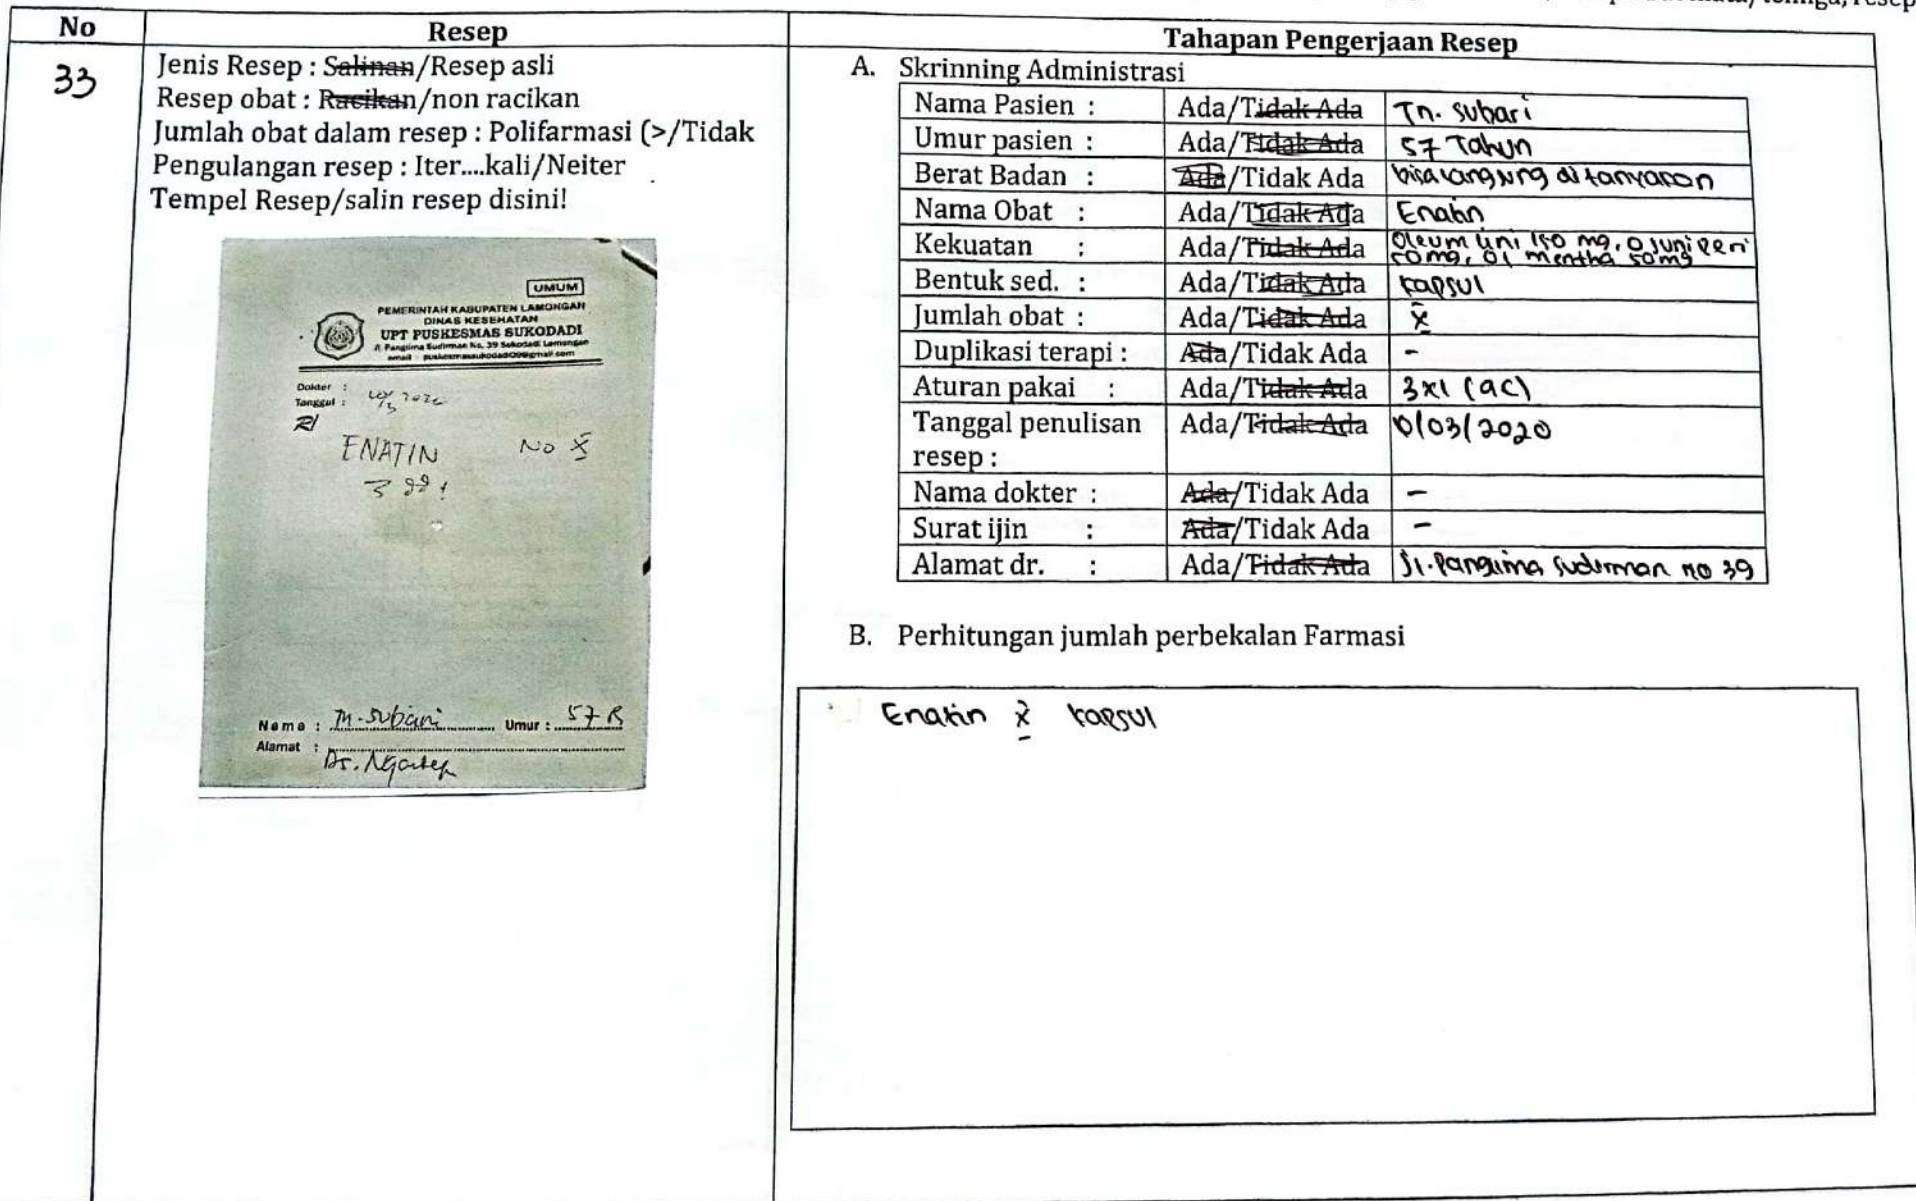 No
Resep
Tahapan Pengerjaan Resep
33
Jenis Resep : Salinan/Resep asli
Resep obat : Racikan/non racikan
Jumlah obat dalam resep : Polifarmasi (>/Tidak
Pengulangan resep : Iter....kali/Neiter
Tempel Resep/salin resep disini!
UMUM
PEMERINTAH KABUPATEN LAMONGAN
DINAS KESEHATAN
UPT PUSKESMAS SUKODADI
Jl. Panglima Sudirman No. 39 Sukodadi Lamongan
Dokter :
Tanggal :
R/
ENATIN No X
3
Nama : Tn. Subari Umur : 57
Alamat :
A. Skrinning Administrasi
Nama Pasien : Ada/Tidak Ada Tn. Subari
Umur pasien : Ada/Tidak Ada 57 Tahun
Berat Badan : Ada/Tidak Ada bisa langsung ditanyakan
Nama Obat : Ada/Tidak Ada Enatin
Kekuatan : Ada/Tidak Ada Oleum lini 150 mg, O Juniperi
50 mg, Ol mentha 50mg
Bentuk sed. : Ada/Tidak Ada kapsul
Jumlah obat : Ada/Tidak Ada X
Duplikasi terapi : Ada/Tidak Ada -
Aturan pakai : Ada/Tidak Ada 3x1 (ac)
Tanggal penulisan Ada/Tidak Ada /03/2020
resep :
Nama dokter : Ada/Tidak Ada -
Surat ijin : Ada/Tidak Ada -
Alamat dr. : Ada/Tidak Ada Jl. Panglima Sudirman no 39
B. Perhitungan jumlah perbekalan Farmasi
Enatin X kapsul